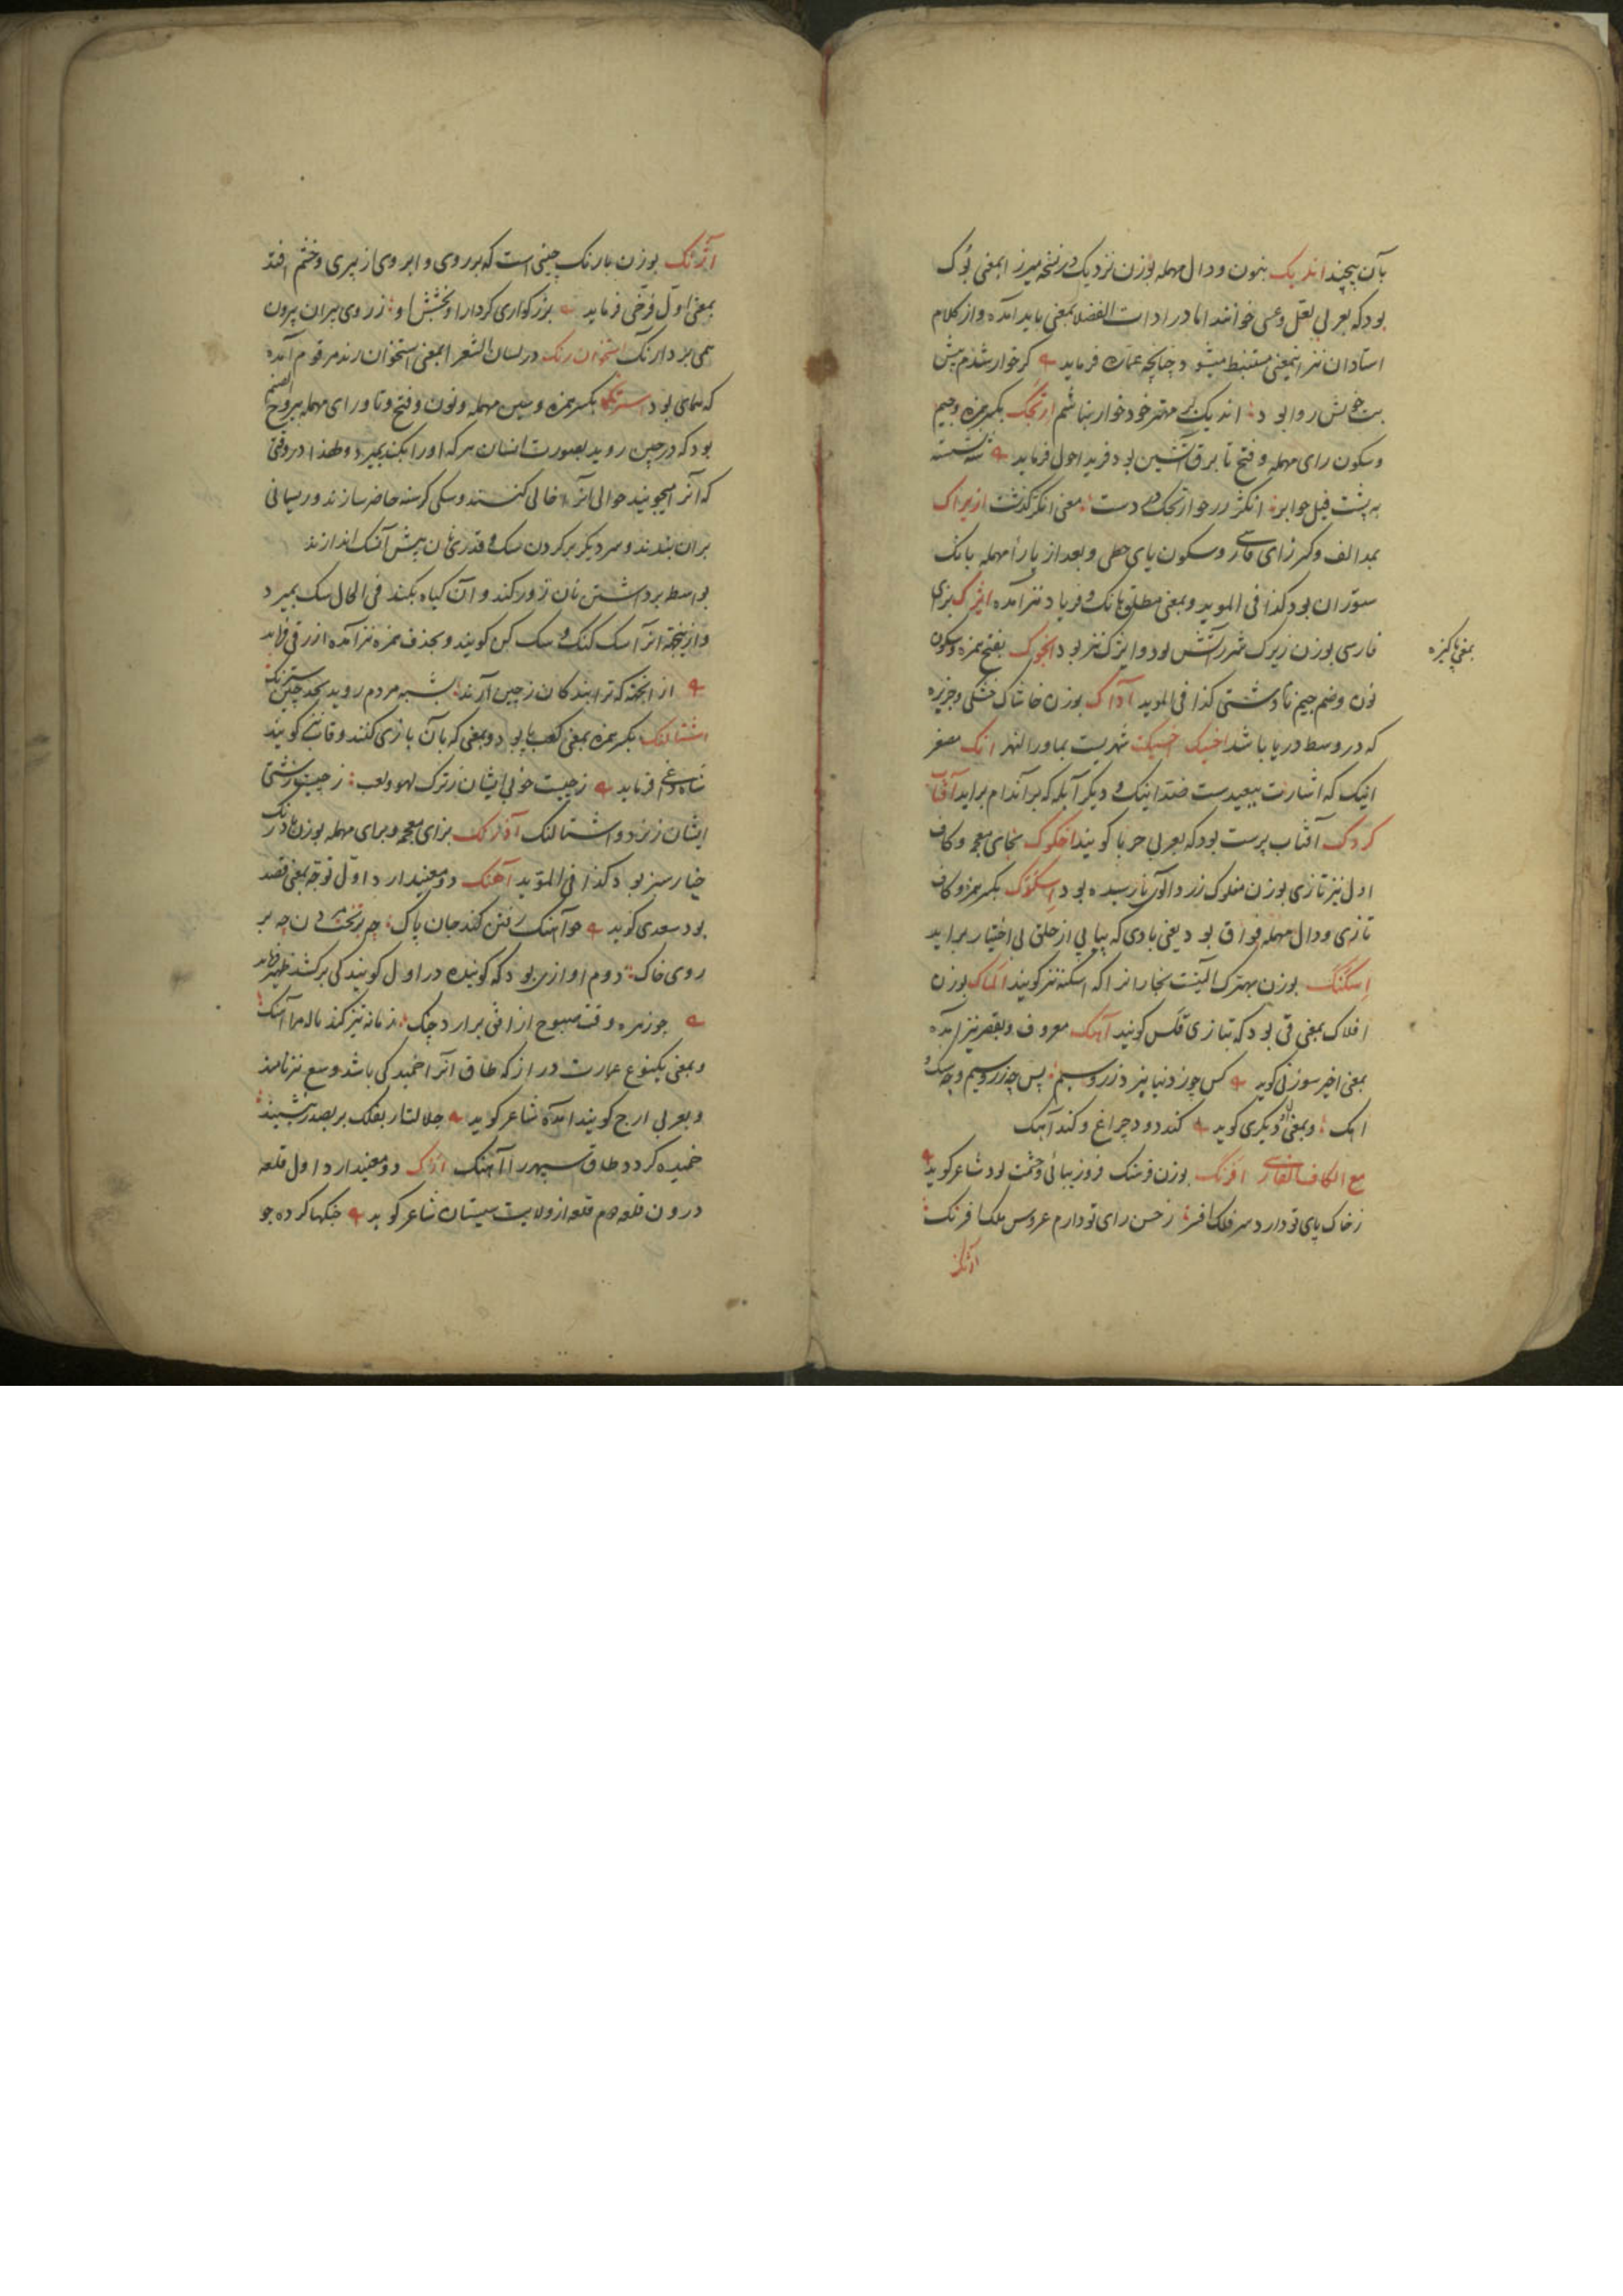 بآن پیچند اندیک بنون و دال مهمله بوزن نزدیک در نسخه میرزا بمعنی بوک
بود که بعربی لعل و عسی خوانند اما در ادات الفضلا بمعنی باید آمده و از کلام
استادان نیز اینمعنی مستنبط میشود چنانچه عماره فرماید کر خوار شدم پیش
بت خویش روا بود اندیک بر مهتر خود خوار نباشم ارتجک بکسر همزه و جیم
و سکون رای مهمله و فتح تا برق آتشین بود فرید احول فرماید نشسته
به پشت فیل چو ابر
بمد الف و کسر زای فارسی و سکون یای حطی و بعد از یا راء مهمله بانک
ستوران بود کذا فی الموید و بمعنی مطلق بانک و فریاد نیز آمده ایژک بزای
فارسی بوزن زیرک شرر آتش بود و ایژک نیز بود انجوک بفتح همزه و سکون
بمعنی پاکیزه
نون و ضم جیم تا دشتی کذا فی الموید آداک بوزن خاشاک خشکی و جزیره
که در وسط دریا باشد اخسیک اخسیکت شهریست بماورا النهر انک مصغر
اینک که اشارت ببعیدست ضد اینک و دیکر آبله که بر اندام برآید آفتاب
کردک آفتاب پرست بود که بعربی حربا کویند اخکوک بخای معجمه و کاف
اول نیز تازی بوزن مفلوک زردآلوی نارسیده بود اسکدک بکسر همزه و کاف
تازی و دال مهمله فواق بود یعنی بادی که پیاپی از حلق بی اختیار برآید
اسکنک بوزن بهترک آلتیست نجارانرا که اسکنه نیز کویند الماک بوزن
افلاک بمعنی قی بود که بتازی قلس کویند آهک معروف و بقصر نیز آمده
بمعنی اخیر سوزنی کوید کس چو ز دنیا پنر د زر و سیم پس چه زر و سیم و چه سنک و
اهک و بمعنی اول دیکری کوید کند دود چراغ و کند آهک
مع الکاف الفارسی افرنک بوزن فرهنک فر و زیبائی و حشمت بود شاعر کوید
ز خاک پای تو دارد سر فلک افسر ز حسن رای تو دارم عروس ملک افرنک
آژنک
آژنک بوزن بارنک چینی است که بر روی و ابروی از پیری و خشم افتد
بمعنی اول فرخی فرماید بزرکواری کردار او و بخشش او ز روی پیران بیرون
همی برد آژنک استخوان رنک در لسان الشعرا بمعنی استخوان رند مرقوم آمده
که همای بود استرنک بکسر همزه و سین مهمله و نون و فتح تا و رای مهمله یبروح الصنم
بود که در چین روید بصورت انسان هر که او را بکند بمیرد و لهذا در وقتی
که آنرا میجویند حوالی آنرا خالی کنند و سکی کرسنه حاضر سازند و ریسمانی
بر آن بندند و سر دیکر بر کردن سک و قدری نان پیش آن سک اندازند
بواسطه برداشتن نان زور کند و آن کیاه بکند فی الحال سک بمیرد
و ازینجهة آنرا سک کنک و سک کن کویند و بحذف همزه نیز آمده ازرقی فرماید
از آنجهة که ترا بندکان ز چین آرند شبه مردم روید بحد چین سترنک
اشتالنک بکسر همزه بمعنی کعب پا بود و بمعنی که بآن بازی کنند و قاب نیز کویند
شاه داعی فرماید ز چیست خوبی ایشان ز ترک لهو و لعب ز چیست زشتی
ایشان ز نرد و اشتالنک آورنک برای معجمه و برای مهمله بوزن بادرنک
خیار سبز بود کذا فی الموید آهنک دو معنیدارد اول توجه بمعنی قصد
بود سعدی کوید چو آهنک رفتن کند جان پاک چه بر تخت مردن چه بر
روی خاک دوم آوازی بود که کوینده در اول کویندکی برکشد ظهیر فرماید
چو زهره وقت صبوح از افق برآرد چنک زمانه تیز کند ناله مرا آهنک
و بمعنی یکنوع عمارت دراز که طاق آنرا خمیدکی باشد وسیع نیز نامند
و بعربی ازج کویند آمده شاعر کوید جلالتار بفلک بر بصدر بنشیند
خمیده کردد طاق سپهر را آهنک ارک دو معنیدارد اول قلعه
درون قلعه دوم قلعه از ولایت سیستان شاعر کوید جنکها کرده چو